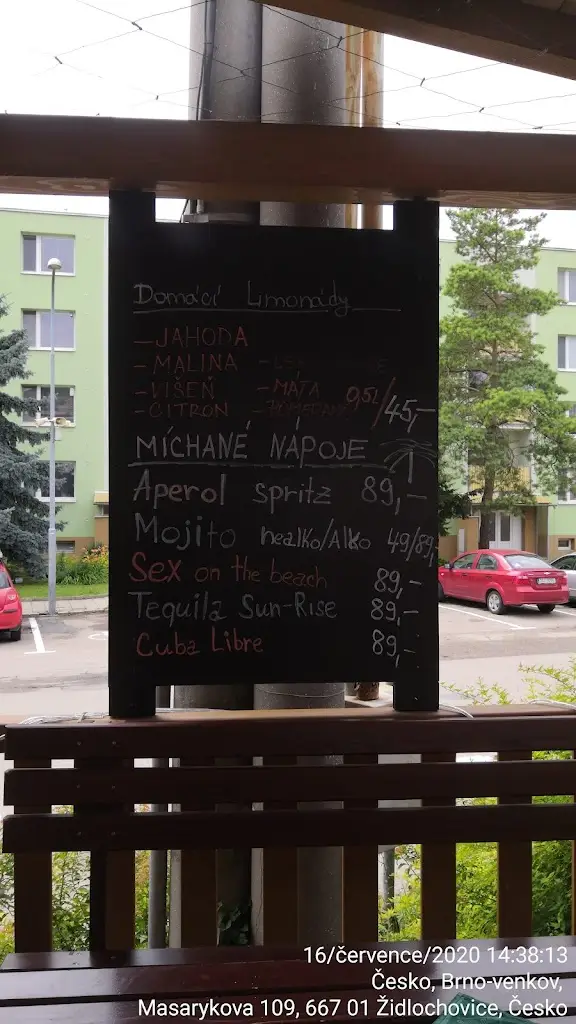 Domácí Limonády
- JAHODA
- MALINA
- VIŠEŇ - MÁTA 0,5l/45,-
- CITRON
MÍCHANÉ NÁPOJE
Aperol spritz 89,-
Mojito nealko/Alko 49/89,-
Sex on the beach 89,-
Tequila Sun-Rise 89,-
Cuba Libre 89,-
16/července/2020 14:38:13
Česko, Brno-venkov,
Masarykova 109, 667 01 Židlochovice, Česko